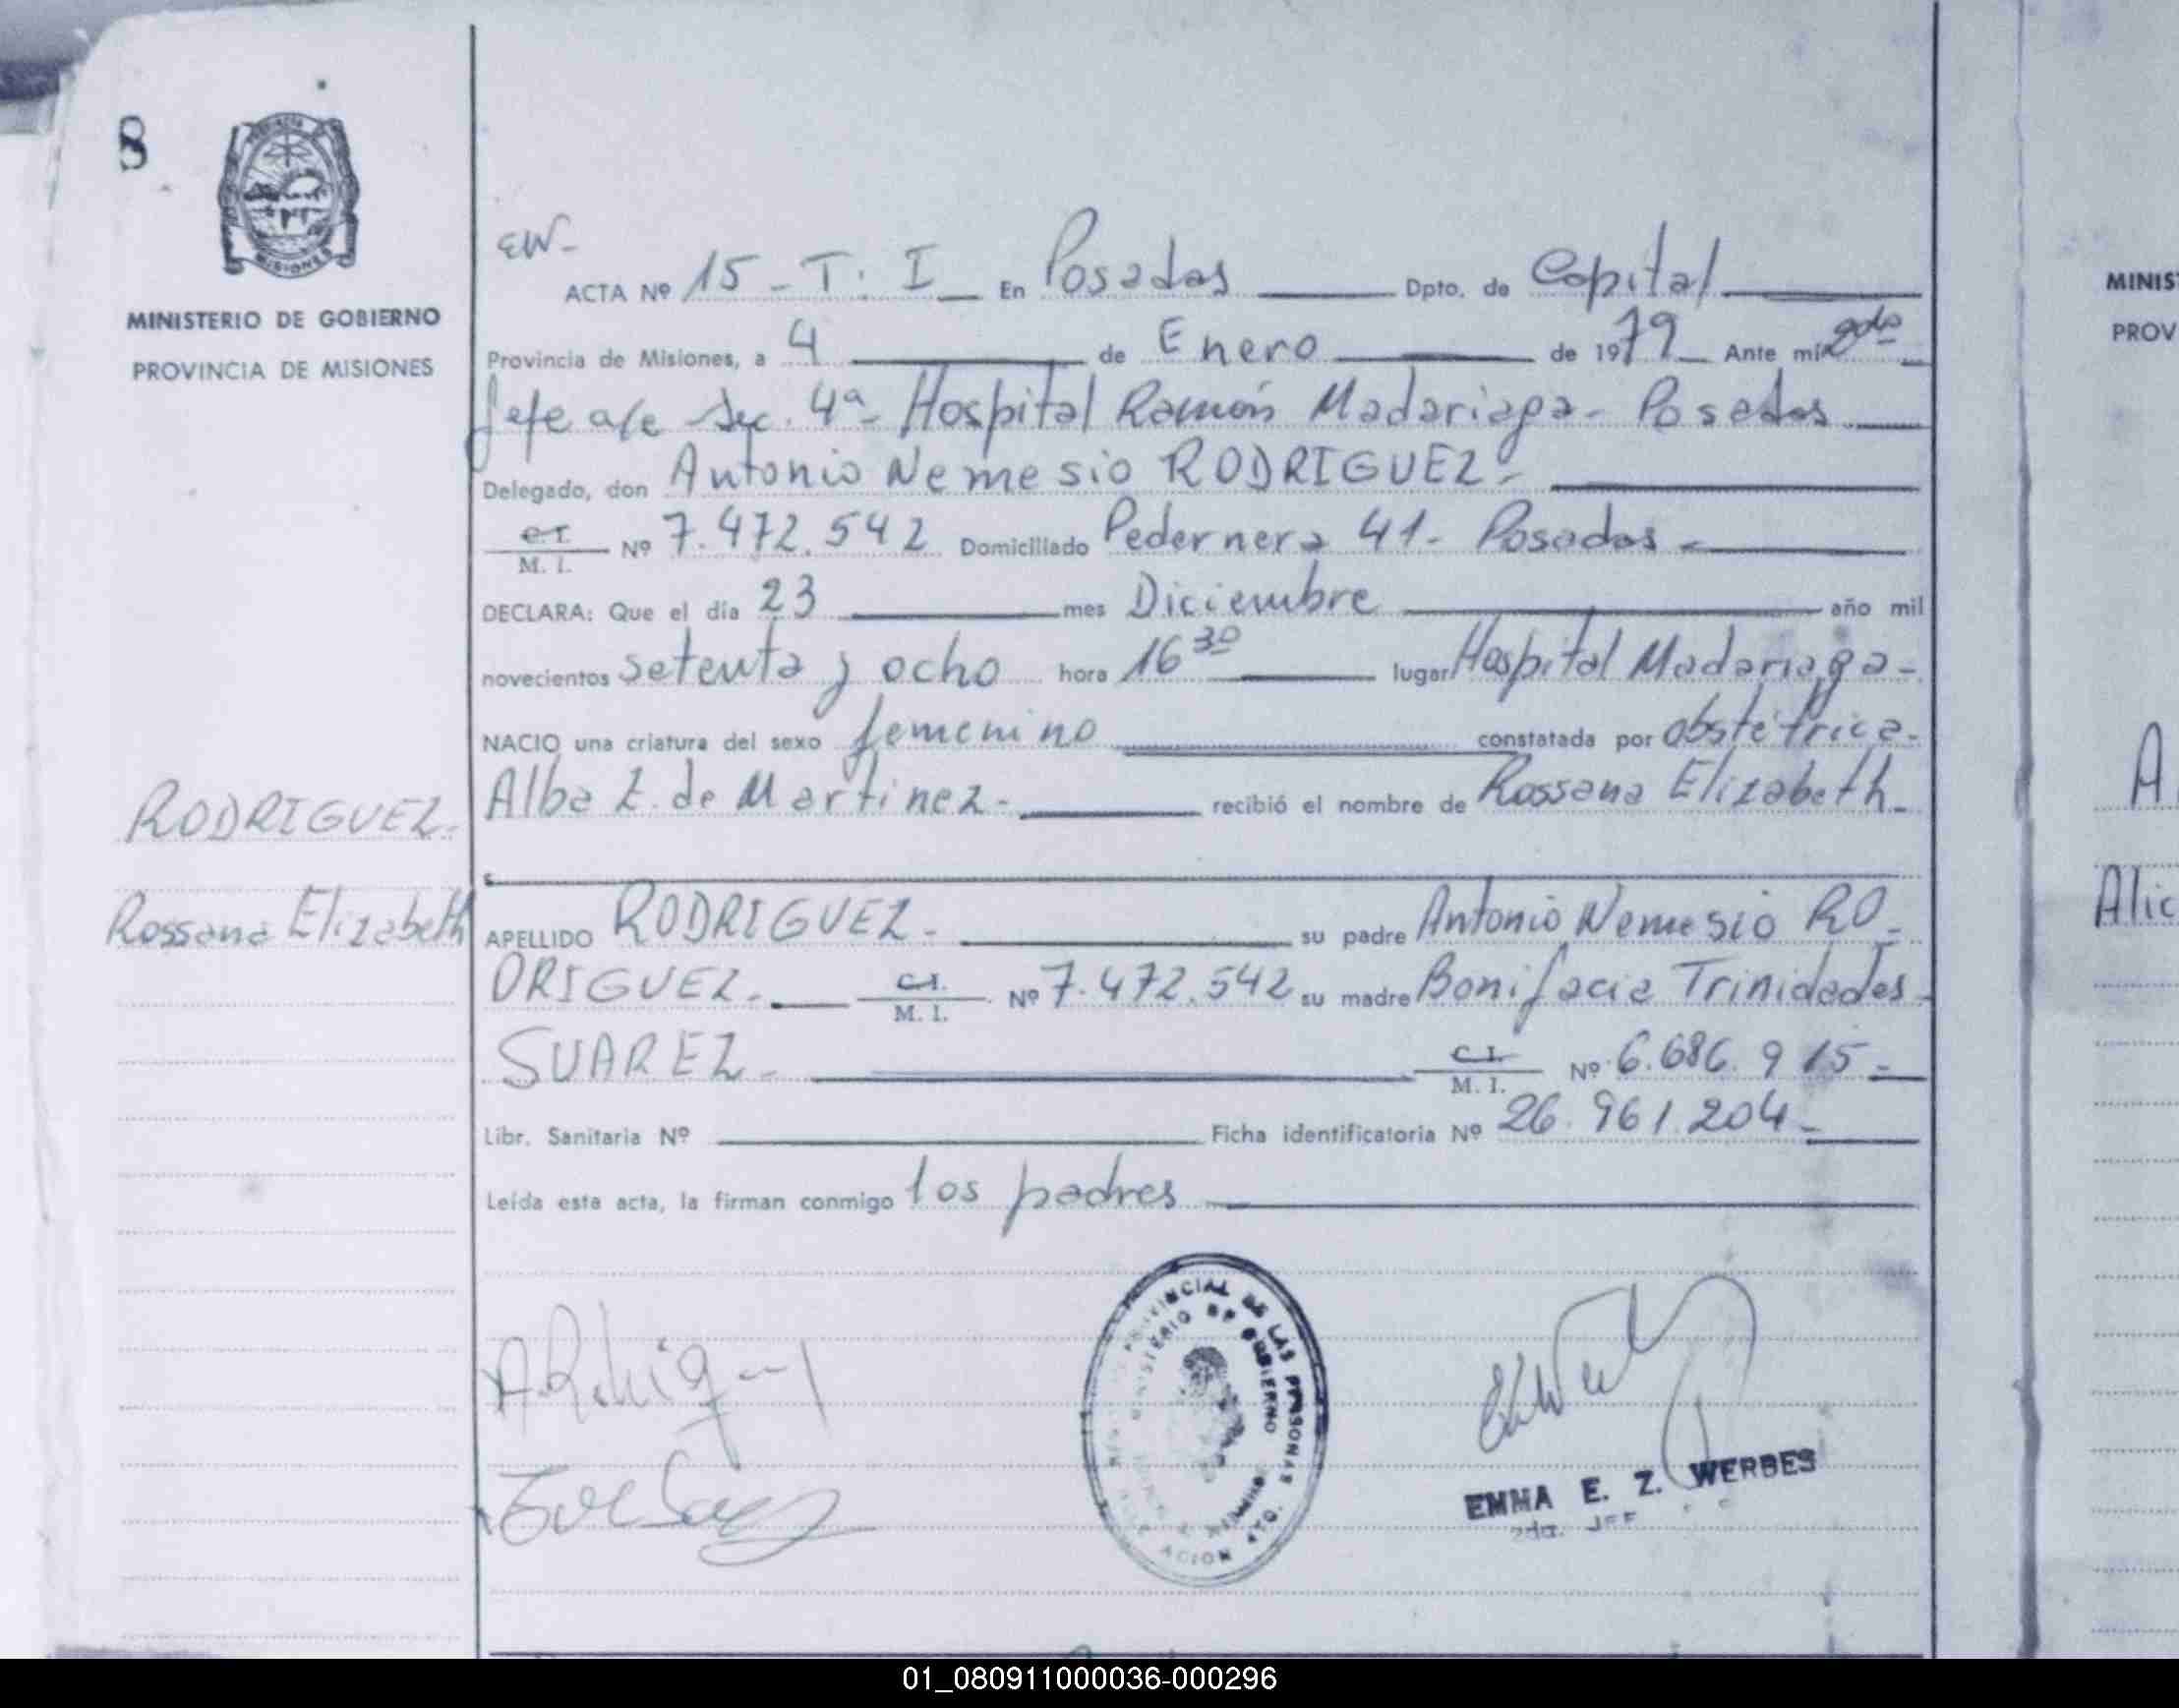 8
PROVINCIA DE
MISIONES
MINISTERIO DE GOBIERNO
PROVINCIA DE MISIONES
RODRIGUEZ.
Rossana Elizabeth
EW-
ACTA Nº 15 - T. I En Posadas Dpto. de Capital
Provincia de Misiones, a 4 de Enero de 1979 Ante mí 2do
Jefe a/c Sec. 4ª- Hospital Ramón Madariaga- Posadas
Delegado, don Antonio Nemesio RODRIGUEZ-
C.I.
M. I. Nº 7.472.542 Domiciliado Pedernera 41- Posadas-
DECLARA: Que el día 23 mes Diciembre año mil
novecientos setenta y ocho hora 16 30 lugar Hospital Madariaga-
NACIO una criatura del sexo femenino constatada por obstétrica-
Alba E. de Martinez- recibió el nombre de Rossana Elizabeth-
APELLIDO RODRIGUEZ- su padre Antonio Nemesio RO-
DRIGUEZ- C.I.
M. I. Nº 7.472.542 su madre Bonifacia Trinidades
SUAREZ- C.I.
M. I. Nº 6.686.915-
Libr. Sanitaria Nº Ficha identificatoria Nº 26.961.204-
Leída esta acta, la firman conmigo los padres
PROVINCIAL DE LAS PERSONAS
MINISTERIO DE GOBIERNO
EMMA E. Z. WERBES
2da. JEF
MINIS
PROV
A
Alic
01_080911000036-000296